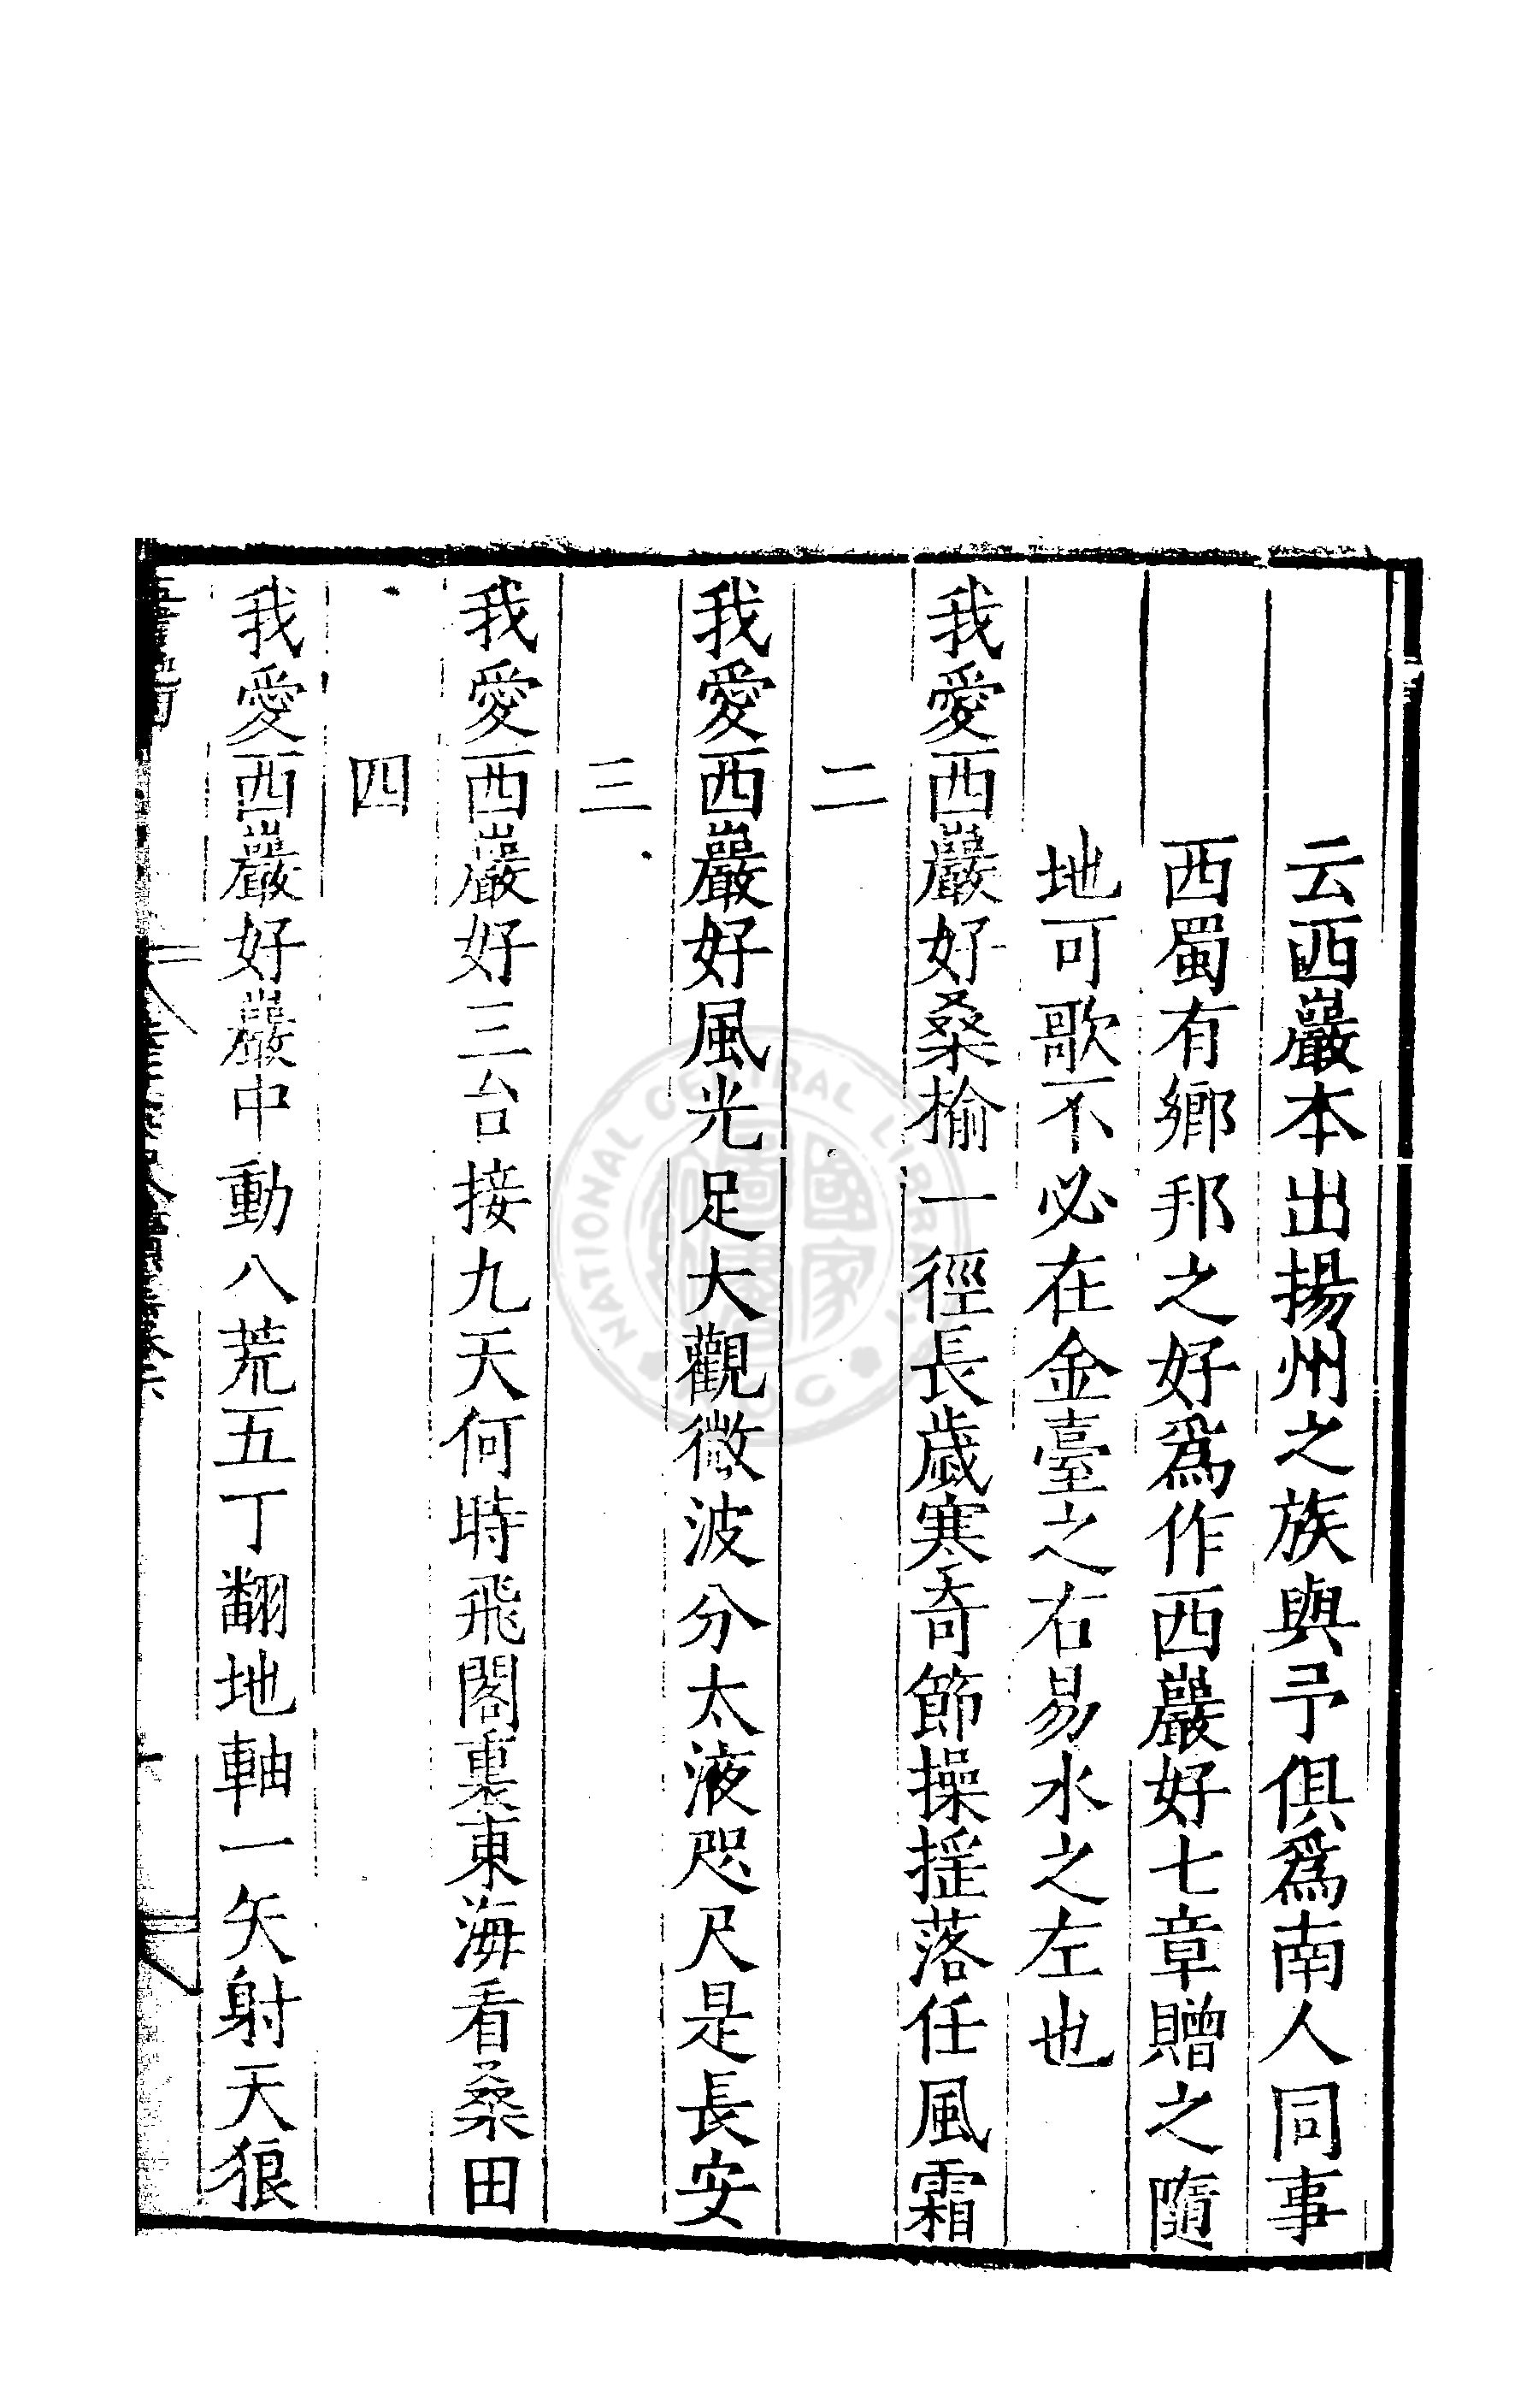 云西巖本出揚州之族與予俱爲南人同事
西蜀有鄉邦之好爲作西巖好七章贈之隨
地可歌不必在金臺之右易水之左也
我愛西巖好桑榆一徑長歲寒奇節操摇落任風霜
二
我愛西巖好風光足大觀微波分太液咫尺是長安
三
我愛西巖好三台接九天何時飛閣裏東海看桑田
四
我愛西巖好巖中動八荒五丁翻地軸一矢射天狼
NATIONAL CENTRAL LIBRARY
國家圖書館